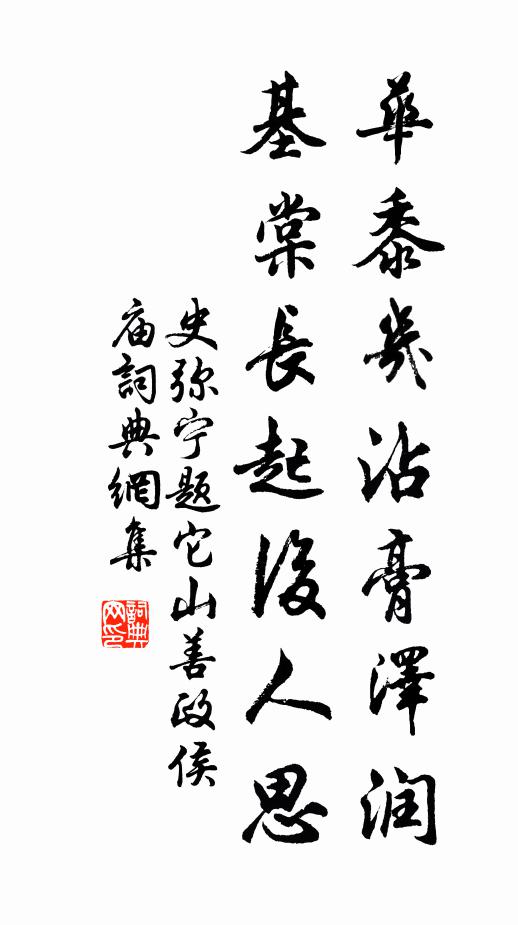 華黍幾沾膏澤润
基棠長起後人思
史弥宁题它山善政侯
庙詞典網集
詞典
网印